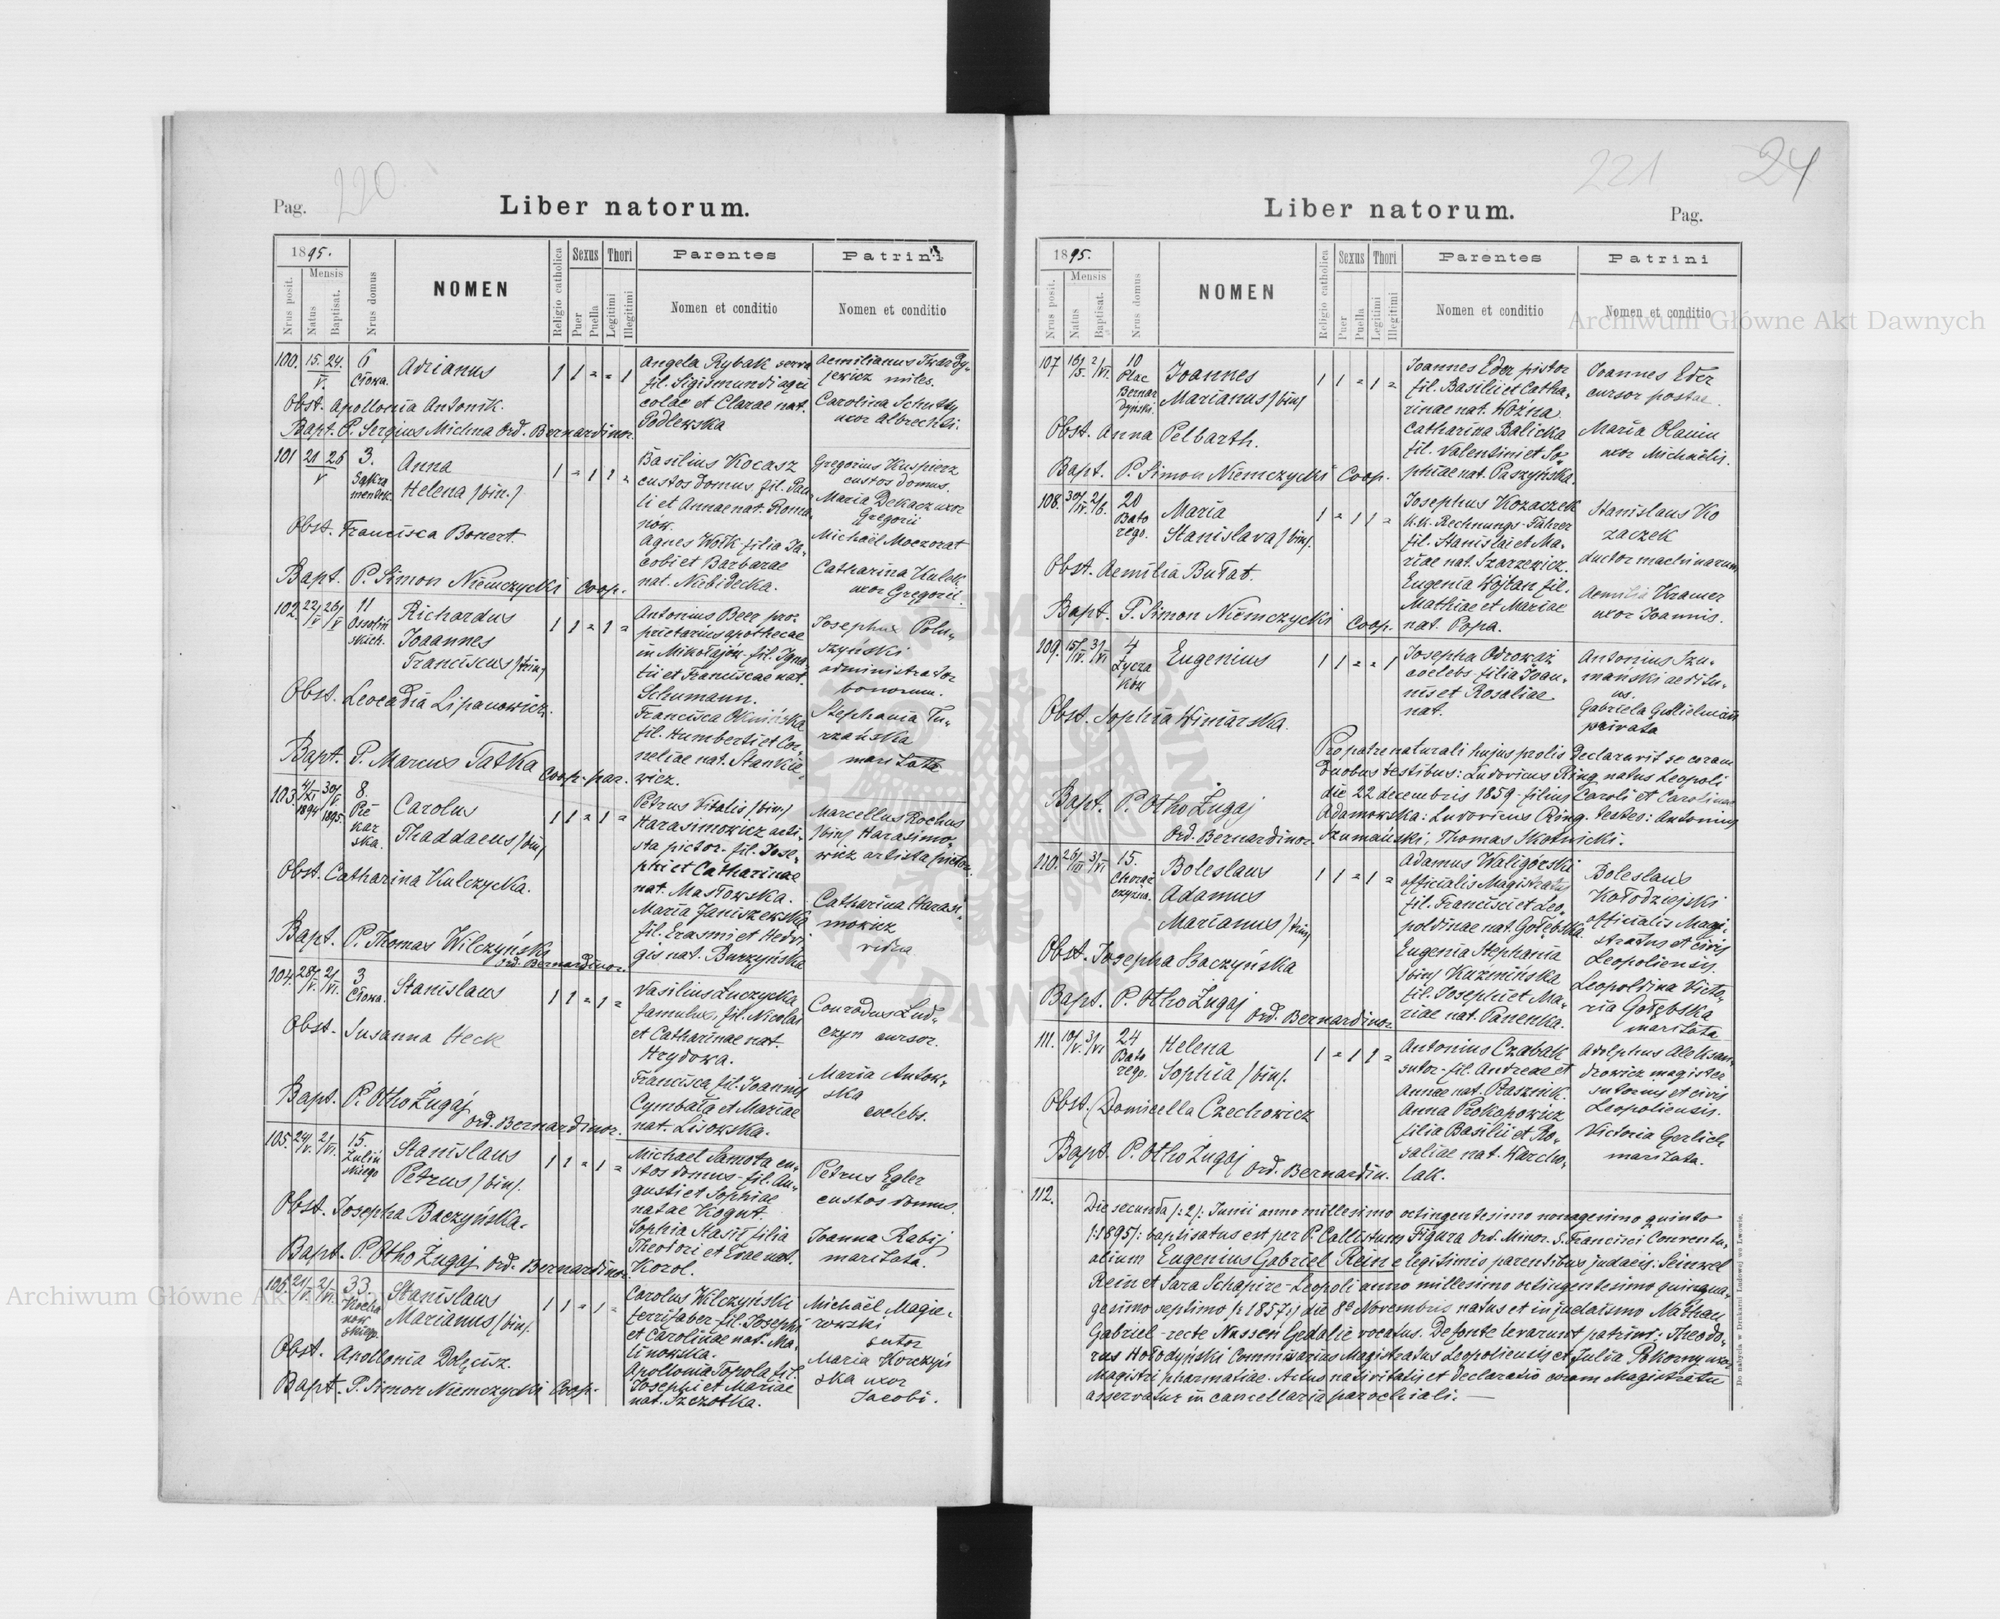 220
Pag.
Liber natorum.
1895.
Nrus posit.
Mensis
Natus
Baptisat.
Nrus domus
NOMEN
Religio catholica
Sexus
Puer
Puella
Thori
Legitimi
Illegitimi
Parentes
Nomen et conditio
Patrini
Nomen et conditio
100. 15. 24. 6 Adrianus 1 1 = = 1 Angela Rybak serva Aemilianus Twardy-
V. Cłowa. fil. Sigismundi agri jewicz miles.
Obst. Apollonia Antonik. colae et Clarae nat. Carolina Schultz
Bapt. P. Sergius Michna Ord. Bernardinor. Podlewska uxor Albrechti.
101 21 26 3. Anna 1 = 1 1 = Basilius Kocasz Gregorius Kuspierz
V Sakra custos domus fil. Pau- custos domus.
mentek. Helena /bin./ li et Annae nat. Roma- Maria Dekacz uxor
nów. Gregorii
Obst. Francisca Bonert. Agnes Wołk filia Ja- Michaël Moczorat
cobi et Barbarae Catharina Kulek
Bapt. P. Simon Niemczycki Coop. nat. Niebidecka. uxor Gregorii.
102. 22/V 26/V 11 Richardus 1 1 = 1 = Antonius Beer pro- Josephus Polu-
Ossoliń prietarius apothecae szyński
skich. Joannes in Mikołajów fil. Igna- administrator
Franciscus /trin/ tii et Franciscae nat. bonorum.
Obst. Leocadia Lipanowicz. Schumann.
Francisca Oknińska Stephania Tu-
fil. Humberti et Cor- rzańska
Bapt. P. Marcus Tatka Coop. par. neliae nat. Stankie- maritata
wicz.
103. 4/XI 30/V 8. Carolus 1 1 = 1 = Petrus Vitalis /bin/ Marcellus Rochus
1894 1895. Pe Harasimowicz arti- /bin/ Harasimo-
kar Thaddaeus /bin/ sta pictor. fil. Jose- wicz artista pictor.
ska. phi et Catharinae
Obst. Catharina Kulczycka. nat. Masłowska. Catharina Harasi-
Maria Janiszewska mowicz
Bapt. P. Thomas Wilczyński fil. Erasmi et Hedvi vidua
Ord. Bernardinor. gis nat. Burzyńska
104. 28/V. 2/VI. 3 Stanislaus 1 1 = 1 = Vasilius Łuczycka Conradus Lud-
Cłowa. famulus, fil. Nicolai czyn cursor.
Obst. Susanna Heck et Catharinae nat.
Hrydowa. Maria Antow-
Francisca fil. Joannis ska
Bapt. P. Otho Żugaj Cymbała et Mariae coelebs.
Ord. Bernardinor. nat. Lisowska.
105. 24/V. 2/VI. 15. Stanislaus 1 1 = 1 = Michael Samota cu- Petrus Egler
Zuliń stos domus fil. Au- custos domus.
skiego Petrus /bin/. gusti et Sophiae
Obst. Josepha Baczyńska. natae Kogut.
Sophia Stasił filia Joanna Rabij
Theodori et Evae nat. maritata.
Bapt. P. Otho Żugaj Ord. Bernardinor. Korol.
106. 21/V. 2/VI. 33. Stanislaus 1 1 = 1 = Carolus Wilczyński Michaël Magie-
Kocha ferrifaber fil. Josephi rowski
now Marianus /bin/. et Carolinae nat. Ma- sutor
skiego. linowska. Maria Korczyń
Obst. Apollonia Apollonia Topola fil. ska uxor
Bapt. P. Simon Niemczycki Coop. Josephi et Mariae Jacobi.
nat. Szczotka.
221
24
Liber natorum.
Pag.
1895.
Nrus posit.
Mensis
Natus
Baptisat.
Nrus domus
NOMEN
Religio catholica
Sexus
Puer
Puella
Thori
Legitimi
Illegitimi
Parentes
Nomen et conditio
Patrini
Nomen et conditio
107 16/5. 2/VI. 10 Joannes 1 1 = 1 = Joannes Eder pistor Joannes Eder
Plac fil. Basilii et Catha- cursor postae.
Bernar Marianus /bin/ rinae nat. Woźna
dyński. Catharina Balicka Maria Olaniu
Obst. Anna Pelbarth. fil. Valentini et So- uxor Michaëlis.
Bapt. P. Simon Niemczycki Coop. phiae nat. Paszyńska.
108. 30/IV. 2/6. 20 Maria 1 = 1 1 = Josephus Kozaczek Stanislaus Ko
Bato k.k. Rechnungs-Führer zaczek
rego. Stanislava /bin/. fil. Stanislai et Ma- ductor machinarum
riae nat. Szarzewicz.
Obst. Aemilia Bułat. Eugenia Wojtan fil. Aemilia Kramer
Mathiae et Mariae uxor Joannis.
Bapt. P. Simon Niemczycki Coop. nat. Popa.
109. 15/IV. 3/VI 4 Eugenius 1 1 = = 1 Josepha Odrowąż Antonius Szu-
Łycza coelebs filia Joan- mański aeditu-
ków nis et Rosaliae us.
Obst. Sophia Winiarska. nat. Gabriela Gulielmian
privata
Pro patre naturali hujus prolis declaravit se coram
duobus testibus: Ludovicus Ring natus Leopoli
die 22 decembris 1859 filius Caroli et Carolinae
Bapt. P. Otho Żugaj Adamowska: Ludovicus Ring. testes: Antonius
Ord. Bernardinor. Szumański, Thomas Skotnicki.
110. 26/III 3/VI 15. Boleslaus 1 1 = 1 = Adamus Waligórski Boleslaus
Chorąż officialis Magistratus Kołodziejski
czyzna. Adamus fil. Francisci et Leo- officialis Magi-
Marianus /trin/ poldinae nat. Gołębska. stratus et civis
Obst. Josepha Baczyńska Eugenia Stephania Leopoliensis.
/bin/ Kuźmińska Leopoldina Victo-
Bapt. P. Otho Żugaj fil. Josephi et Ma- ria Gołębska
Ord. Bernardinor. riae nat. Panenka. maritata
111. 10/V. 3/VI 24 Helena 1 = 1 1 = Antonius Czabak Adolphus Aleksan-
Bato sutor fil. Andreae et drowicz magister
rego. Sophia /bin/. Annae nat. Ptasznik. sutorius et civis
Obst. Domicella Czechowicz Anna Prokopowicz Leopoliensis.
filia Basilii et Ro- Victoria Gerlich
Bapt. P. Otho Żugaj Ord. Bernardin. saliae nat. Warcho- maritata.
lak.
112. Die secunda /:2/: Junii anno millesimo octingentesimo nonagesimo quinto
/:1895/: baptisatus est per P. Callistum Figura Ord. Minor. S. Francisci Conventu-
alium Eugenius Gabriel Rein e legitimis parentibus judaeis: Seinwel
Rein et Sara Schapire Leopoli anno millesimo octingentesimo quinqua-
gesimo septimo /:1857:/ die 8a Novembris natus et in judaismo Nathan
Gabriel recte Nussen Gedalie vocatus. De fonte levarunt patrini: Theodo-
rus Hołodyński Commissarius Magistratus Leopoliensis et Julia Pokorny uxor
Magistri pharmatiae. Actus nativitatis et declaratio coram Magistratu
asservatur in cancellaria parochiali.
Do nabycia w Drukarni Ludowej we Lwowie.
Archiwum Główne Akt Dawnych
Archiwum Główne Akt Dawnych